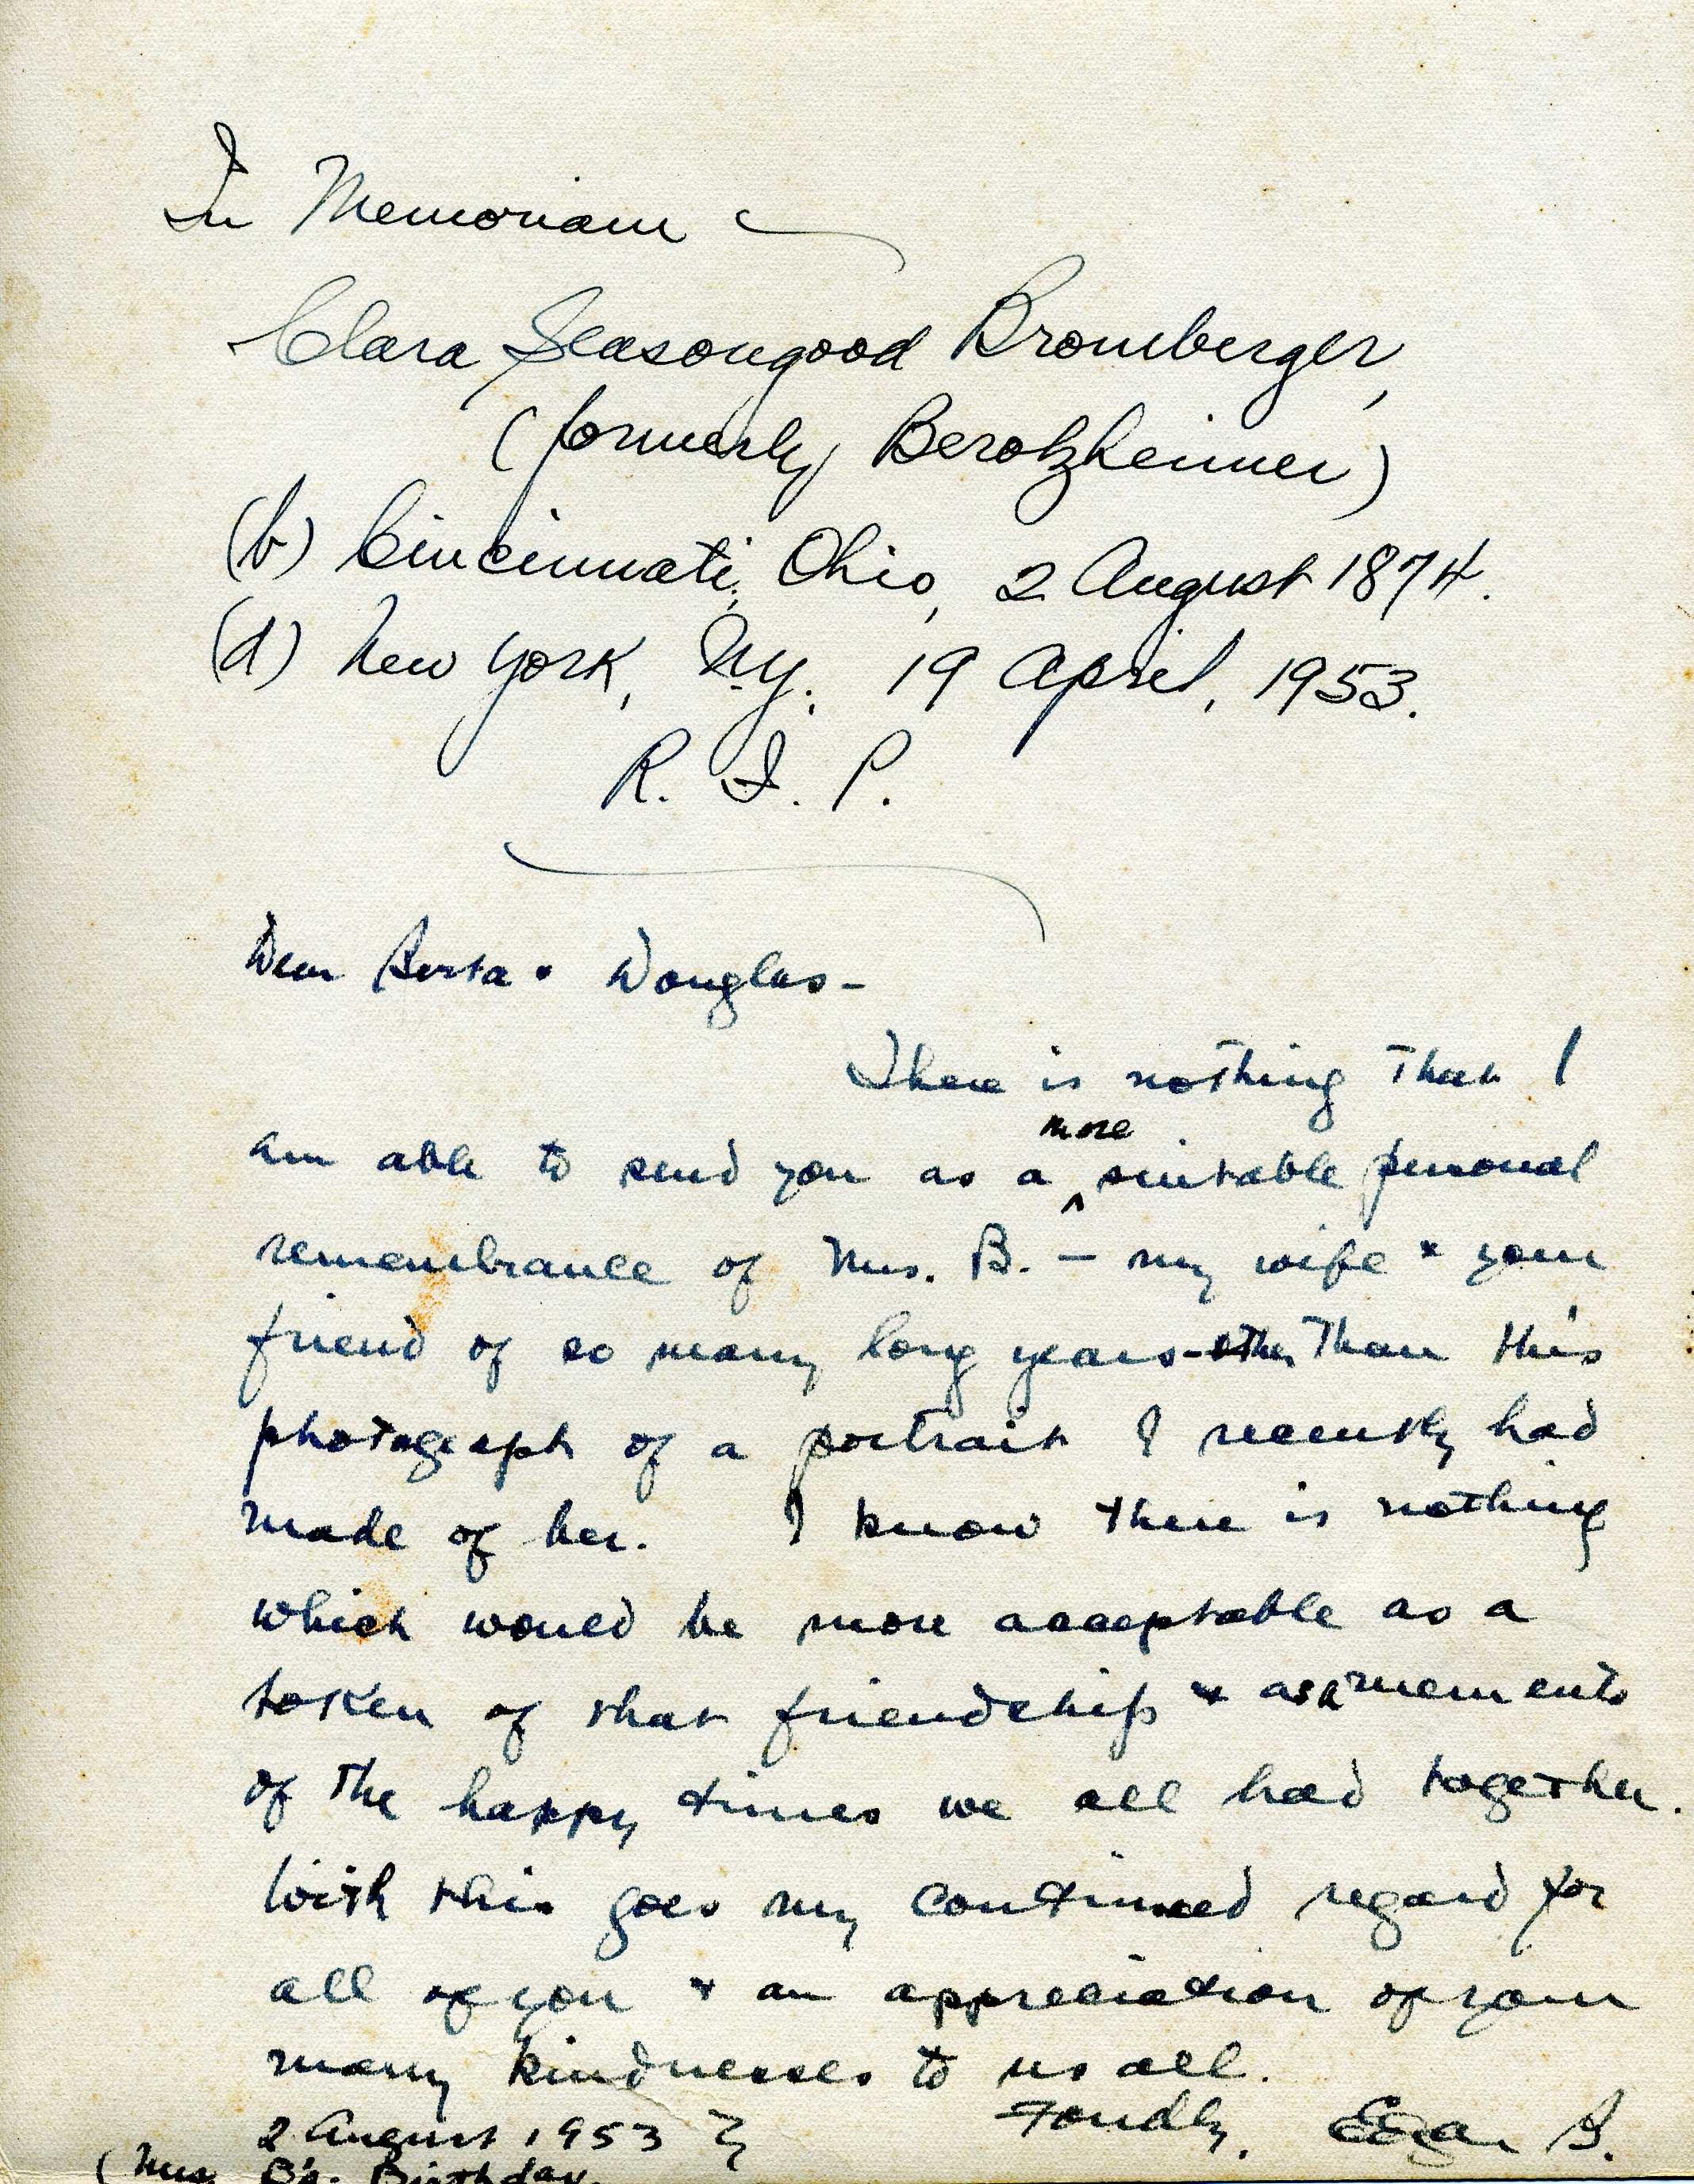 In Memoriam
Clara Seasongood Bromberger,
(formerly Berolzheimer)
(b) Cincinnati, Ohio, 2 August 1874.
(d) New York, N.Y. 19 April, 1953.
R. I. P.
Dear Berta & Douglas -
There is nothing that I
more
am able to send you as a ^ suitable personal
remembrance of Mrs. B. — my wife & your
friend of so many long years - other than this
photograph of a portrait I recently had
made of her. I know there is nothing
which would be more acceptable as a
token of that friendship & as a memento
of the happy times we all had together.
With this goes my continued regard for
all of you & an appreciation of your
many kindnesses to us all.
2 August 1953 } Fondly, Edgar B.
(Mrs. B's. Birthday